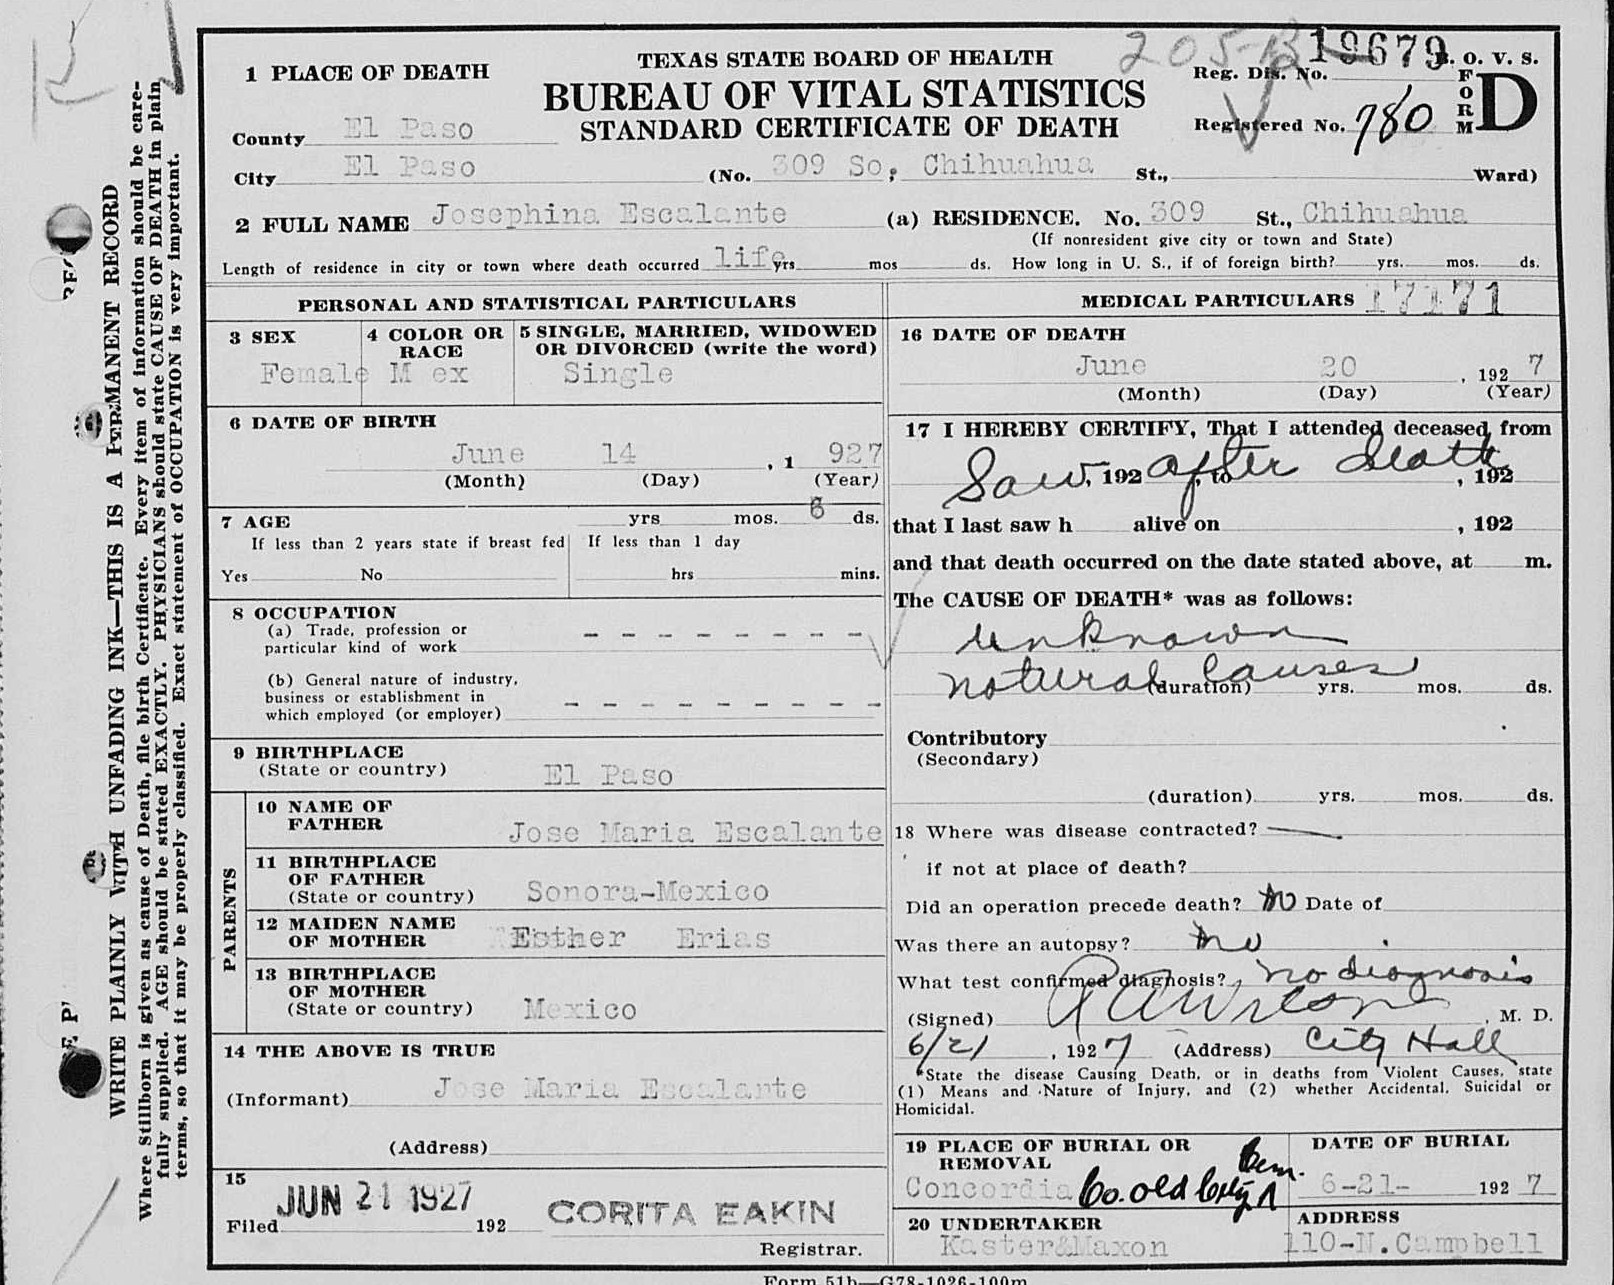 205-B
19679
1 PLACE OF DEATH
TEXAS STATE BOARD OF HEALTH
Reg. Dis. No. B. O. V. S.
BUREAU OF VITAL STATISTICS
FORM D
County El Paso
STANDARD CERTIFICATE OF DEATH
Registered No. 780
City El Paso (No. 309 So, Chihuahua St., Ward)
2 FULL NAME Josephina Escalante (a) RESIDENCE. No. 309 St., Chihuahua
(If nonresident give city or town and State)
Length of residence in city or town where death occurred life yrs mos ds. How long in U. S., if of foreign birth? yrs. mos. ds.
PERSONAL AND STATISTICAL PARTICULARS
3 SEX
Female
4 COLOR OR RACE
M ex
5 SINGLE, MARRIED, WIDOWED
OR DIVORCED (write the word)
Single
6 DATE OF BIRTH
June 14 , 1 927
(Month) (Day) (Year)
7 AGE yrs mos. 6 ds.
If less than 2 years state if breast fed If less than 1 day
Yes No hrs mins.
8 OCCUPATION
(a) Trade, profession or
particular kind of work - - - - - - - - -
(b) General nature of industry,
business or establishment in
which employed (or employer) - - - - - - - - -
9 BIRTHPLACE
(State or country) El Paso
PARENTS
10 NAME OF
FATHER Jose Maria Escalante
11 BIRTHPLACE
OF FATHER
(State or country) Sonora-Mexico
12 MAIDEN NAME
OF MOTHER Esther Erias
13 BIRTHPLACE
OF MOTHER
(State or country) Mexico
14 THE ABOVE IS TRUE
(Informant) Jose Maria Escalante
(Address)
15
Filed JUN 21 1927 192 CORITA EAKIN
Registrar.
MEDICAL PARTICULARS 17171
16 DATE OF DEATH
June 20 , 192 7
(Month) (Day) (Year)
17 I HEREBY CERTIFY, That I attended deceased from
Saw , 192 after , to death , 192
that I last saw h alive on , 192
and that death occurred on the date stated above, at m.
The CAUSE OF DEATH* was as follows:
unknown
natural causes
(duration) yrs. mos. ds.
Contributory
(Secondary)
(duration) yrs. mos. ds.
18 Where was disease contracted? —
if not at place of death?
Did an operation precede death? no Date of
Was there an autopsy? no
What test confirmed diagnosis? no diagnosis
(Signed) R A Wilson , M. D.
6/21 , 192 7 (Address) City Hall
*State the disease Causing Death, or in deaths from Violent Causes, state
(1) Means and Nature of Injury, and (2) whether Accidental, Suicidal or
Homicidal.
19 PLACE OF BURIAL OR
REMOVAL
Concordia Co. old City Cem.
DATE OF BURIAL
6-21- 192 7
20 UNDERTAKER
Kaster&Maxon
ADDRESS
110-N.Campbell
Form 51b—G78-1026-100m
WRITE PLAINLY WITH UNFADING INK—THIS IS A PERMANENT RECORD
Where Stillborn is given as cause of Death, file birth Certificate. Every item of information should be care-
fully supplied. AGE should be stated EXACTLY. PHYSICIANS should state CAUSE OF DEATH in plain
terms, so that it may be properly classified. Exact statement of OCCUPATION is very important.